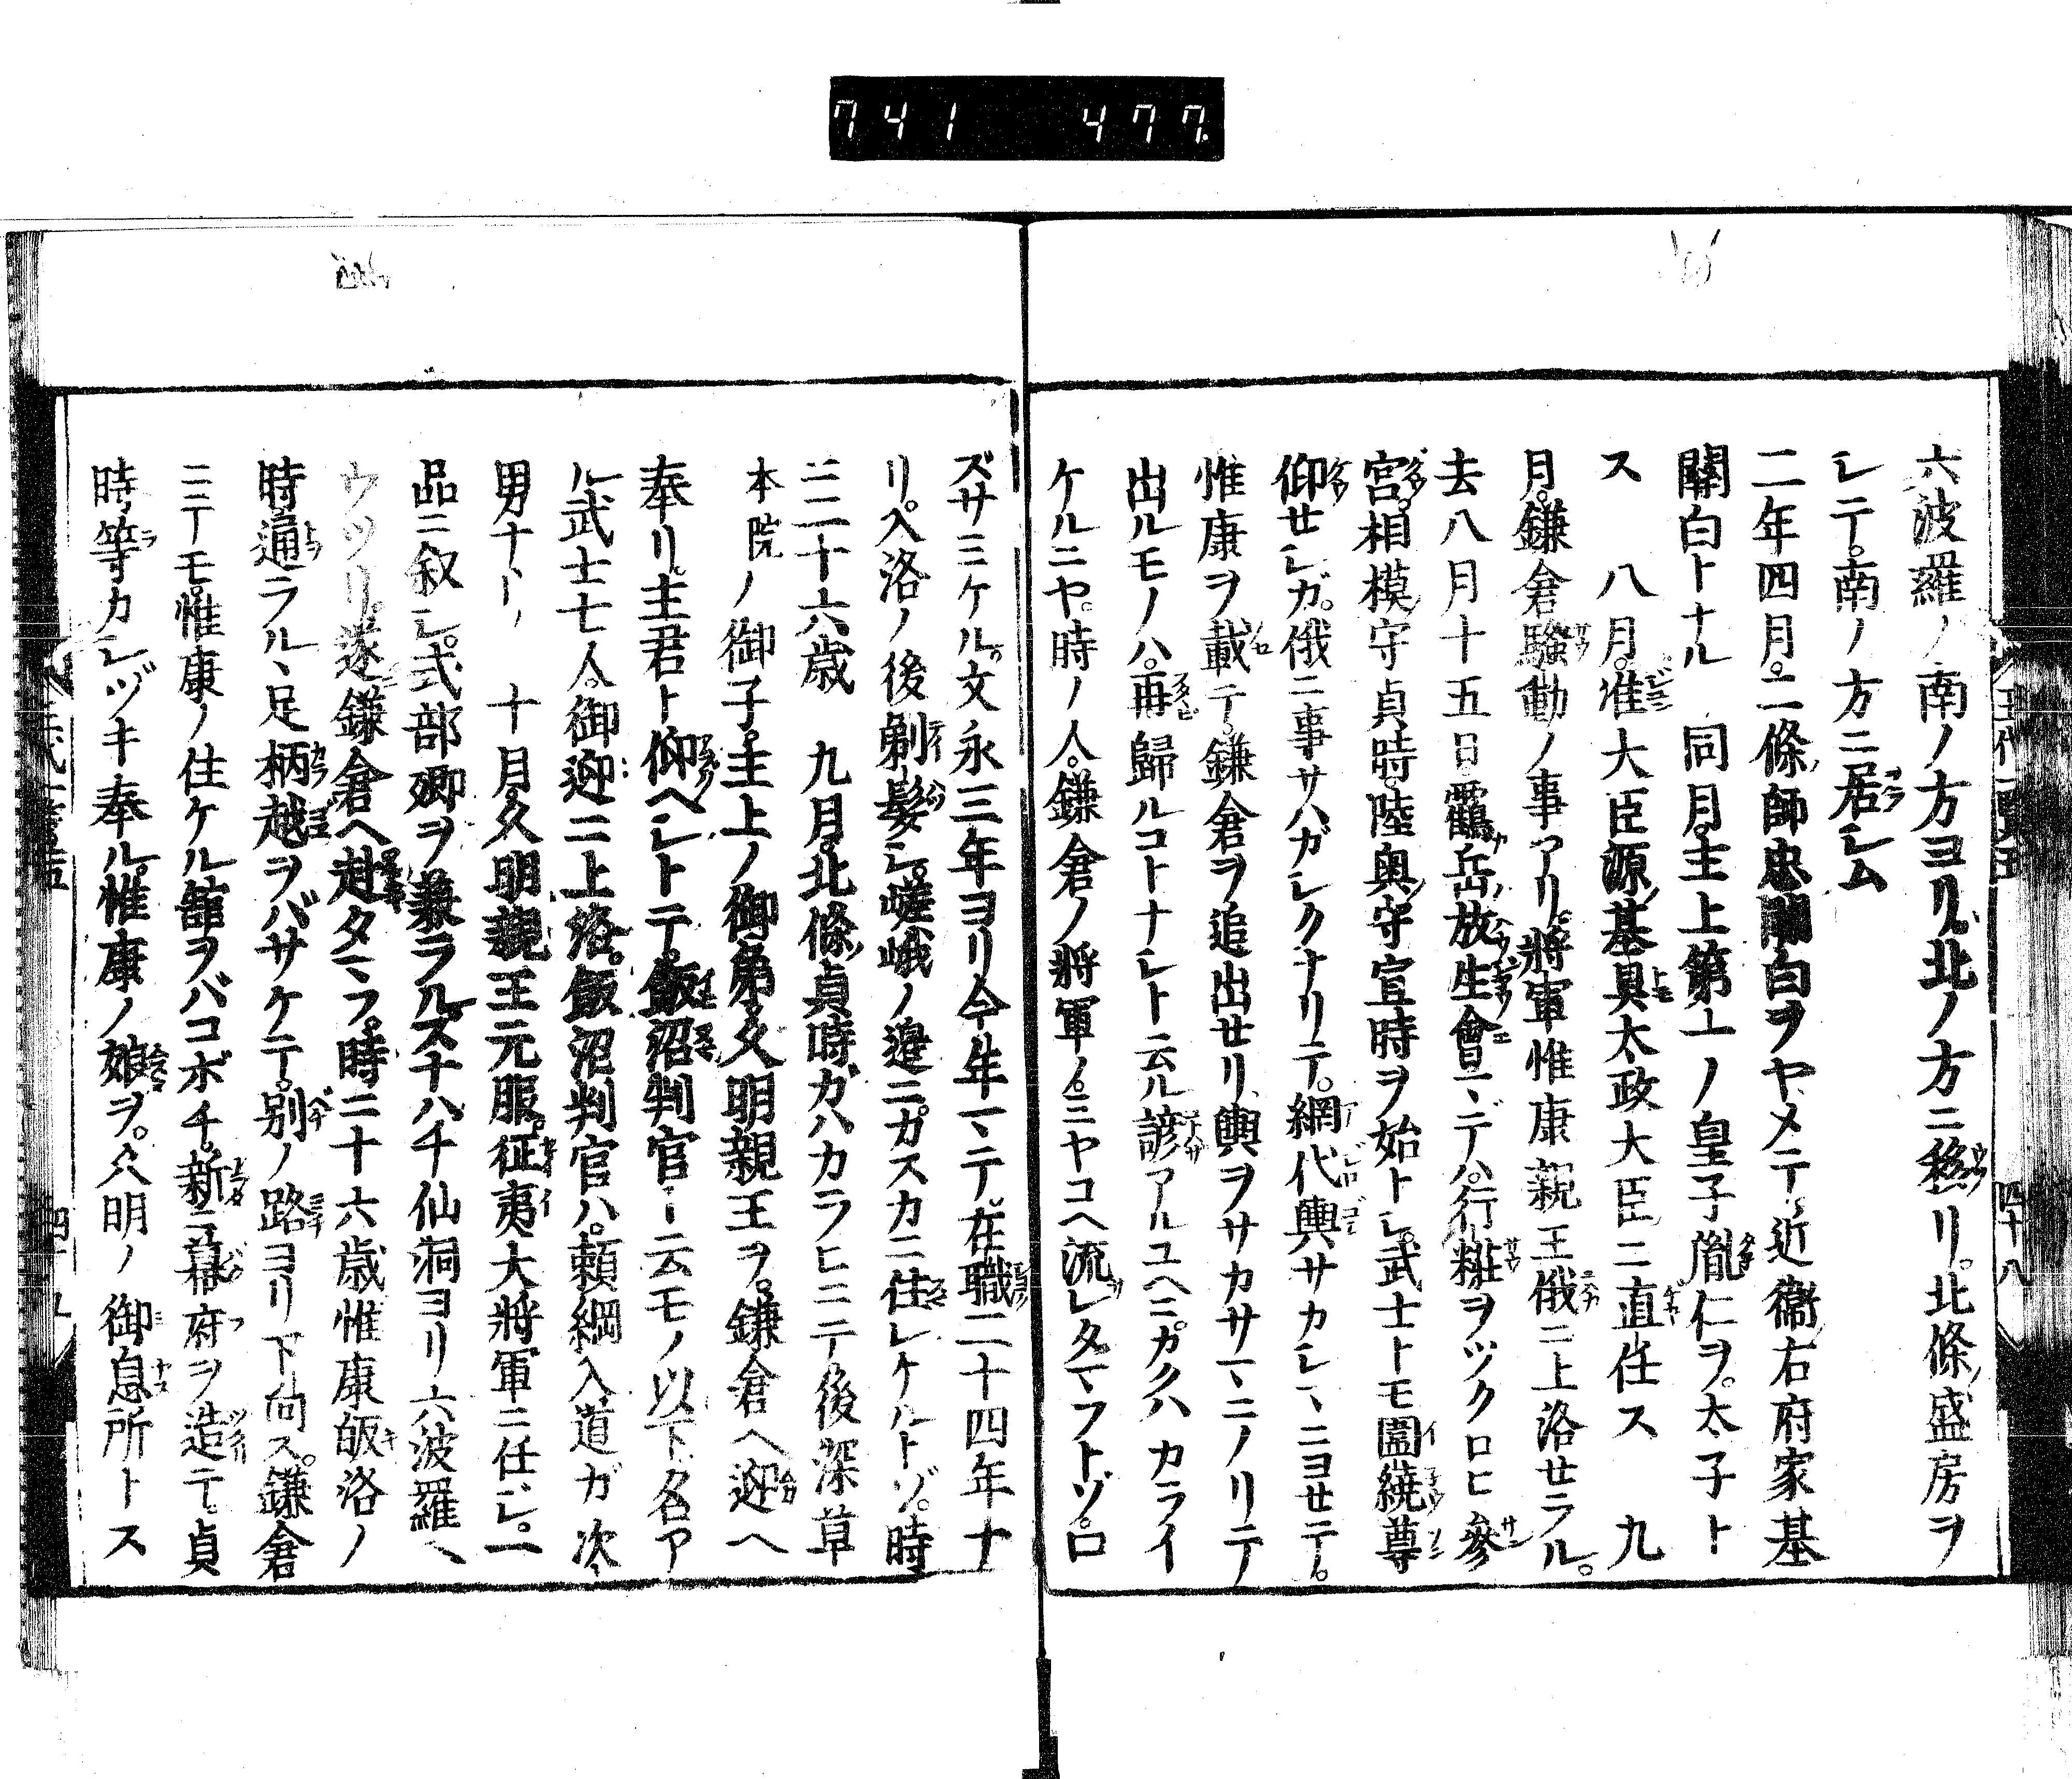 741 477.
六波羅ノ南ノ方ヨリ。北ノ方ニ移リ。北條盛房ヲ
シテ。南ノ方ニ居シム
二年四月。二條師忠關白ヲヤメテ。近衞右府家基
關白トナル 同月。主上第一ノ皇子胤仁ヲ。太子ト
ス 八月。准大臣源基具太政大臣ニ直任ス 九
月。鎌倉騷動ノ事アリ。將軍惟康親王俄ニ上洛セラル。
去八月十五日。鶴岳放生會マデハ。行粧ヲツクロヒ參
宮。相模守貞時。陸奧守宣時ヲ始トシ。武士トモ圍繞尊
仰セシガ。俄ニ事サハガシクナリテ。網代輿サカシマニヨセテ。
惟康ヲ載テ。鎌倉ヲ追出セリ。輿ヲサカサマニノリテ
出ルモノハ。再歸ルコトナシト云ル諺アルユヘニ。カクハカライ
ケルニヤ。時ノ人。鎌倉ノ將軍ノ。ミヤコヘ流レタマフトゾ。口
ズサミケル。文永三年ヨリ今年マテ。在職二十四年ナ
リ。入洛ノ後剃髮シ。嵯峨ノ邊ニカスカニ住シケルトゾ。時
ニ二十六歲 九月。北條貞時ガハカラヒニテ後深草
本院ノ御子。主上ノ御弟。久明親王ヲ。鎌倉ヘ迎ヘ
奉リ。主君ト仰ヘシトテ。飯沼判官ト云モノ以下。名ア
ル武士七人。御迎ニ上洛。飯沼判官ハ。頼綱入道ガ次
男ナリ 十月。久明親王元服。征夷大將軍ニ任ジ。一
品ニ叙シ。式部卿ヲ兼ラル。スナハチ仙洞ヨリ六波羅ヘ
ウツリ。遂鎌倉ヘ赴タマフ。時ニ十六歲惟康皈洛ノ
時。通ラルヽ足柄越ヲバサケテ。別ノ路ヨリ下向ス。鎌倉
ニテモ。惟康ノ住ケル舘ヲバコボチ。新ニ幕府ヲ造テ。貞
時等カシヅキ奉ル。惟康ノ娘ヲ。久明ノ御息所トス
四十八